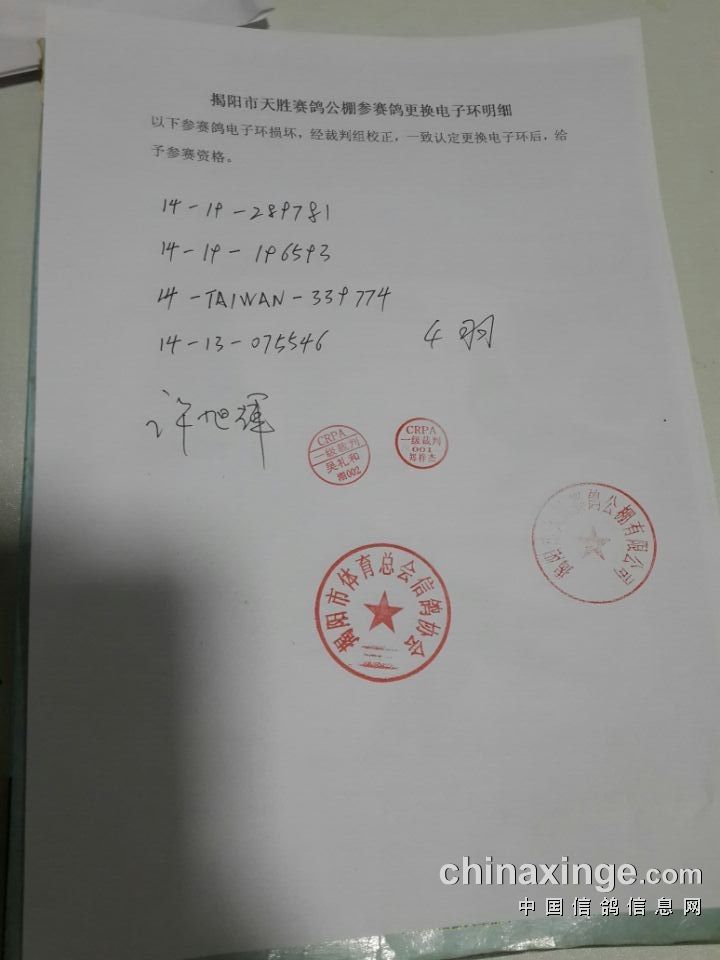 揭阳市天胜赛鸽公棚参赛鸽更换电子环明细
以下参赛鸽电子环损坏，经裁判组校正，一致认定更换电子环后，给
予参赛资格。
14-19-289781
14-19-196593
14-TAIWAN-339774
14-13-075546
4 羽
许旭辉
CRPA
一级裁判
吴礼和
潮002
CRPA
一级裁判
001
郑梓杰
揭阳市 鸽公棚有限公司
揭阳市体育总会信鸽协会
chinaxinge.com
中国信鸽信息网